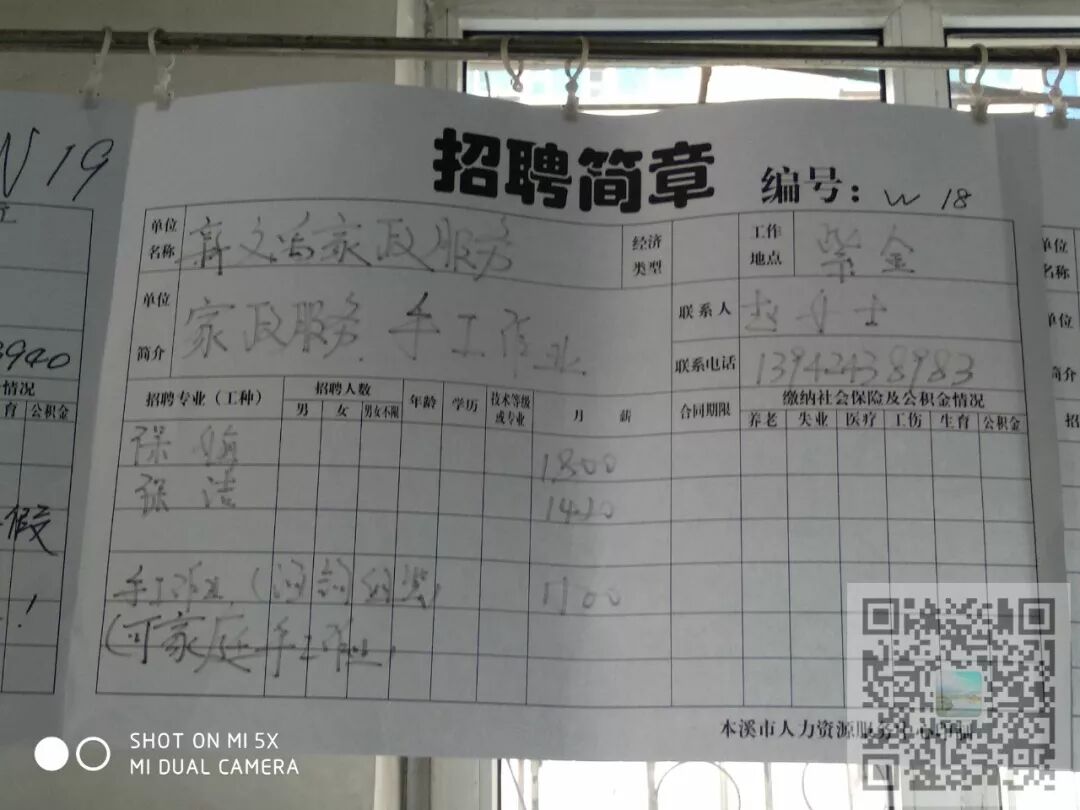 招聘简章
编号：W 18
W 19
单位名称 家政服务
经济类型
工作地点 紫金
单位简介 家政服务 手工作业
联系人 赵女士
联系电话 13942438983
招聘专业（工种） 招聘人数 年龄 学历 技术等级或专业 月薪 合同期限 缴纳社会保险及公积金情况
男 女 男女不限 养老 失业 医疗 工伤 生育 公积金
保姆 1800
保洁
手工作业 1700
（可家庭手工作业）
本溪市人力资源服务中心印制
3940
情况
育 公积金
假
！
单位名称
单位
简介
招
SHOT ON MI 5X
MI DUAL CAMERA